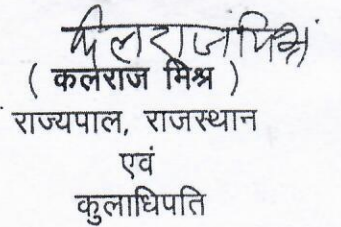 कलराज मिश्र
( कलराज मिश्र )
राज्यपाल, राजस्थान
एवं
कुलाधिपति